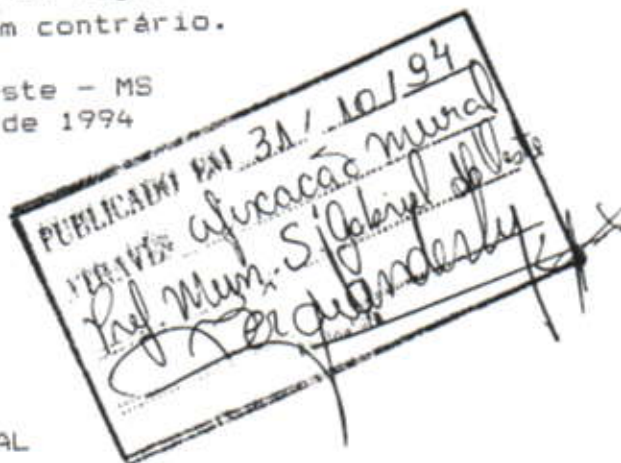 m contrário.
ste - MS
de 1994
PUBLICADO EM 31/10/94
ATRAVÉS afixação mural
Pref. Mun. S. Gabriel do Oeste
AL